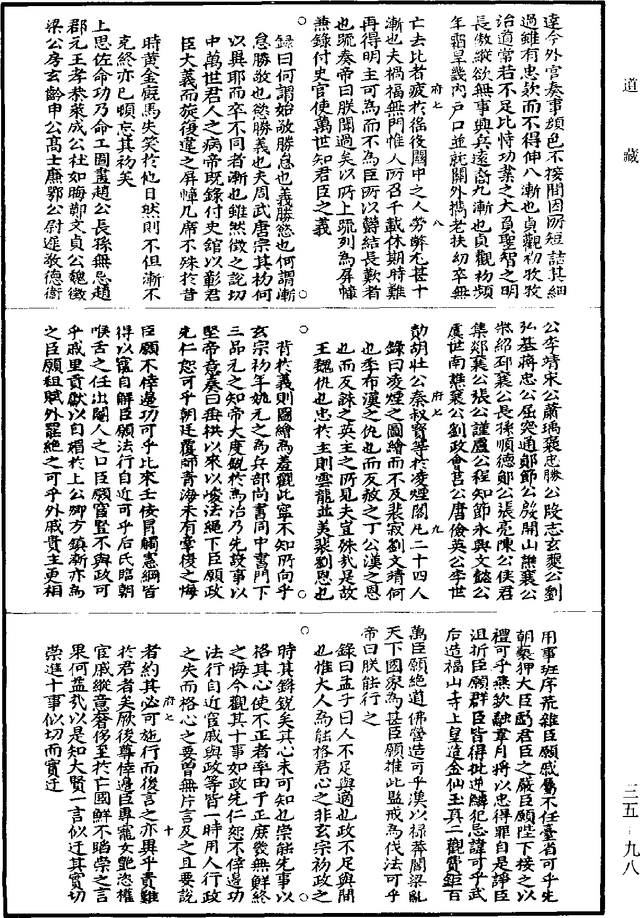 道藏
達今外官奏事顏色不接間因所短詰其細
過雖有忠欵而不得伸八漸也貞觀初孜孜
治道常若不足比恃功業之大負聖智之明
長傲縱欲無事興兵遠裔九漸也貞觀初頻
年霜旱畿內戶口並就關外攜老扶幼卒無
府七 八
亡去比者疲於徭役關中之人勞弊尤甚十
漸也夫禍福無門惟人所召千載休期時難
再得明主可為而不為臣所以鬱結長歎者
也疏奏帝曰朕聞過矣以所上疏列為屏幛
兼錄付史官使萬世知君臣之義
錄曰何謂始敬勝怠也義勝慾也何謂漸
怠勝敬也慾勝義也夫周武唐宗其初何
以異耶而卒不同者漸也雖然徵之說切
中萬世君人之病帝既錄付史館以彰君
臣大義而旋復違之屏幛几席不殊於昔
時黃金廄馬失笑於他日然則不但漸不
克終亦已頓忘其初矣
上思佐命功乃命工圖畫趙公長孫無忌趙
郡元王孝恭萊成公杜如晦鄭文貞公魏徵
梁公房玄齡申公高士廉鄂公尉遲敬德衛
公李靖宋公蕭瑀褒忠公段志玄夔公劉
弘基蔣忠公屈突通鄖節公殷開山譙襄公
柴紹邳襄公長孫順德鄖公張亮陳公侯君
集郯襄公張公謹盧公程知節永興文懿公
虞世南譙襄公劉政會莒公唐儉英公李世
府七 九
勣胡壯公秦叔寶等於凌煙閣凡二十四人
錄曰凌煙之圖繪而不及裴寂劉文靖何
也季布漢之仇也而反赦之丁公漢之恩
也而反誅之英主之所見夫豈殊哉是故
王魏仇也忠於主則雲龍並美裴劉恩也
背於義則圖繪為羞觀此寧不知所向乎
玄宗初年姚元之為兵部尚書同中書門下
三品元之知帝大度銳於為治乃先設事以
堅帝意奏曰垂拱以來以峻法繩下臣願政
先仁恕可乎朝廷覆師青海未有牽復之悔
臣願不倖邊功可乎比來壬佞冒觸憲綱皆
得以寵自解臣願法行自近可乎后氏臨朝
喉舌之任出閹人之口臣願宦豎不與政可
乎戚里貢獻以自媚於上公卿方鎮漸亦為
之臣願租賦外罷絕之可乎外戚貴主更相
用事班序荒雜臣願戚屬不任臺省可乎先
朝褻狎大臣虧君臣之嚴臣願陛下接之以
禮可乎燕欽融韋月將以忠得罪自是諍臣
沮折臣願群臣皆得批逆鱗犯忌諱可乎武
后造福山寺上皇造金仙玉真二觀費鉅百
萬臣願絕道佛營造可乎漢以祿莽閻梁亂
天下國家為甚臣願推此監戒為代法可乎
帝曰朕能行之
錄曰孟子曰人不足與適也政不足與間
也惟大人為能格君心之非玄宗初政之
時其鋒銳矣其心未可知也崇能先事以
格其心使不正者率由于正庶幾無鮮終
之悔今觀其十事如政先仁恕不倖邊功
法行自近宦戚與政等皆一時用人行政
之失而格心之要曾無片言及之且要說
府七 十
者約其必可施行而後言之亦異乎責難
於君者矣厥後尊倖邊臣專寵女艷恣權
宦戚縱意奢侈至於亡國鮮不蹈崇之言
果何益哉以是知大賢一言似迂其實切
崇進十事似切而實迂
三五-九八